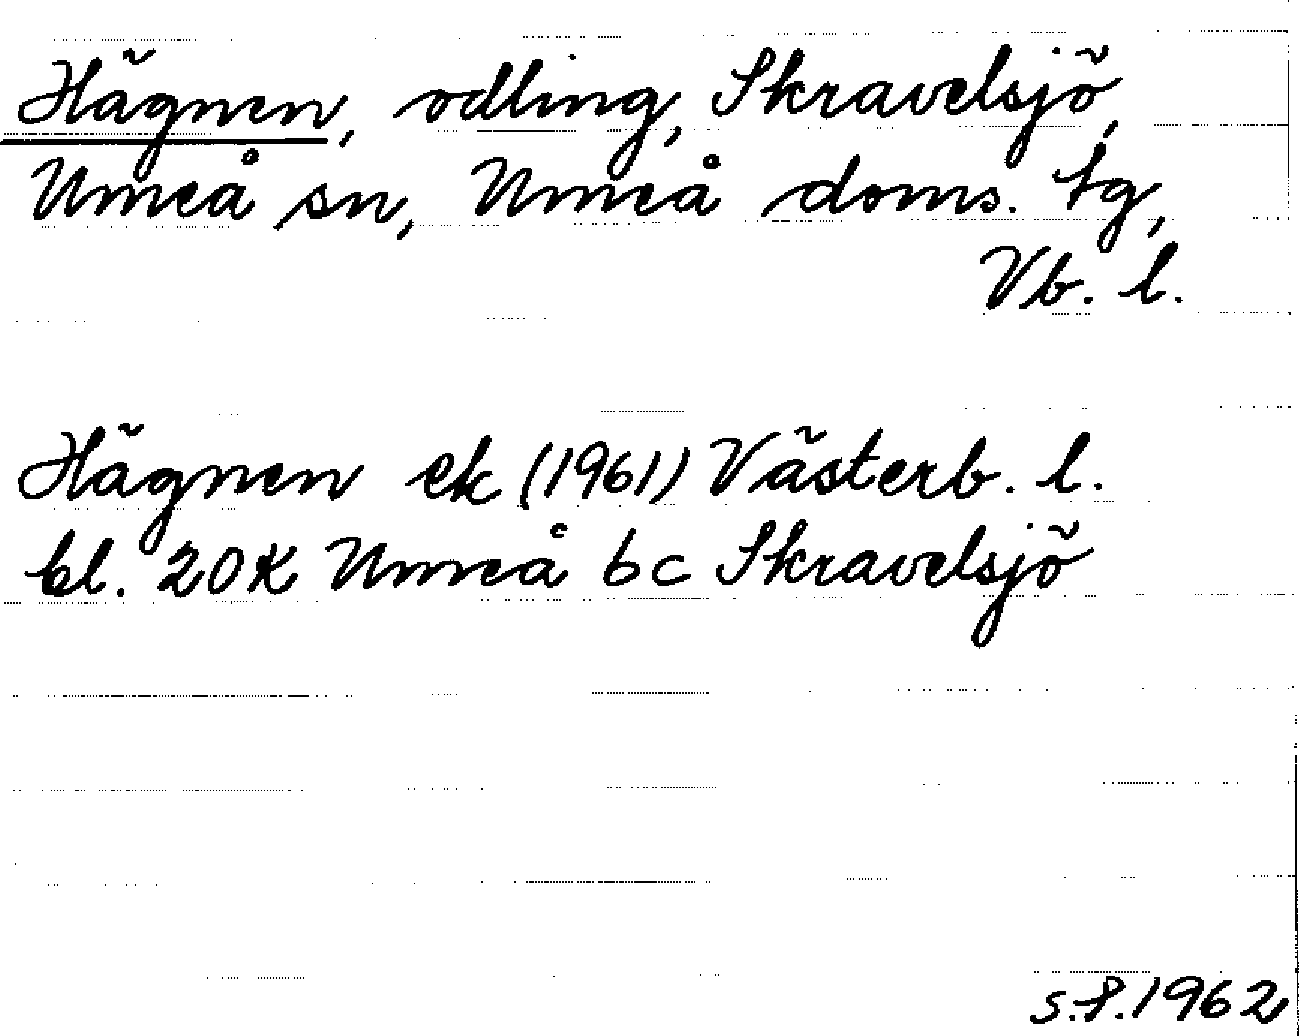 Hägnen, odling, Skravelsjö,
Umeå sn, Umeå doms. tg,
Vb. l.
Hägnen ek (1961) Västerb. l.
bl. 20K Umeå bc Skravelsjö
S.P. 1962